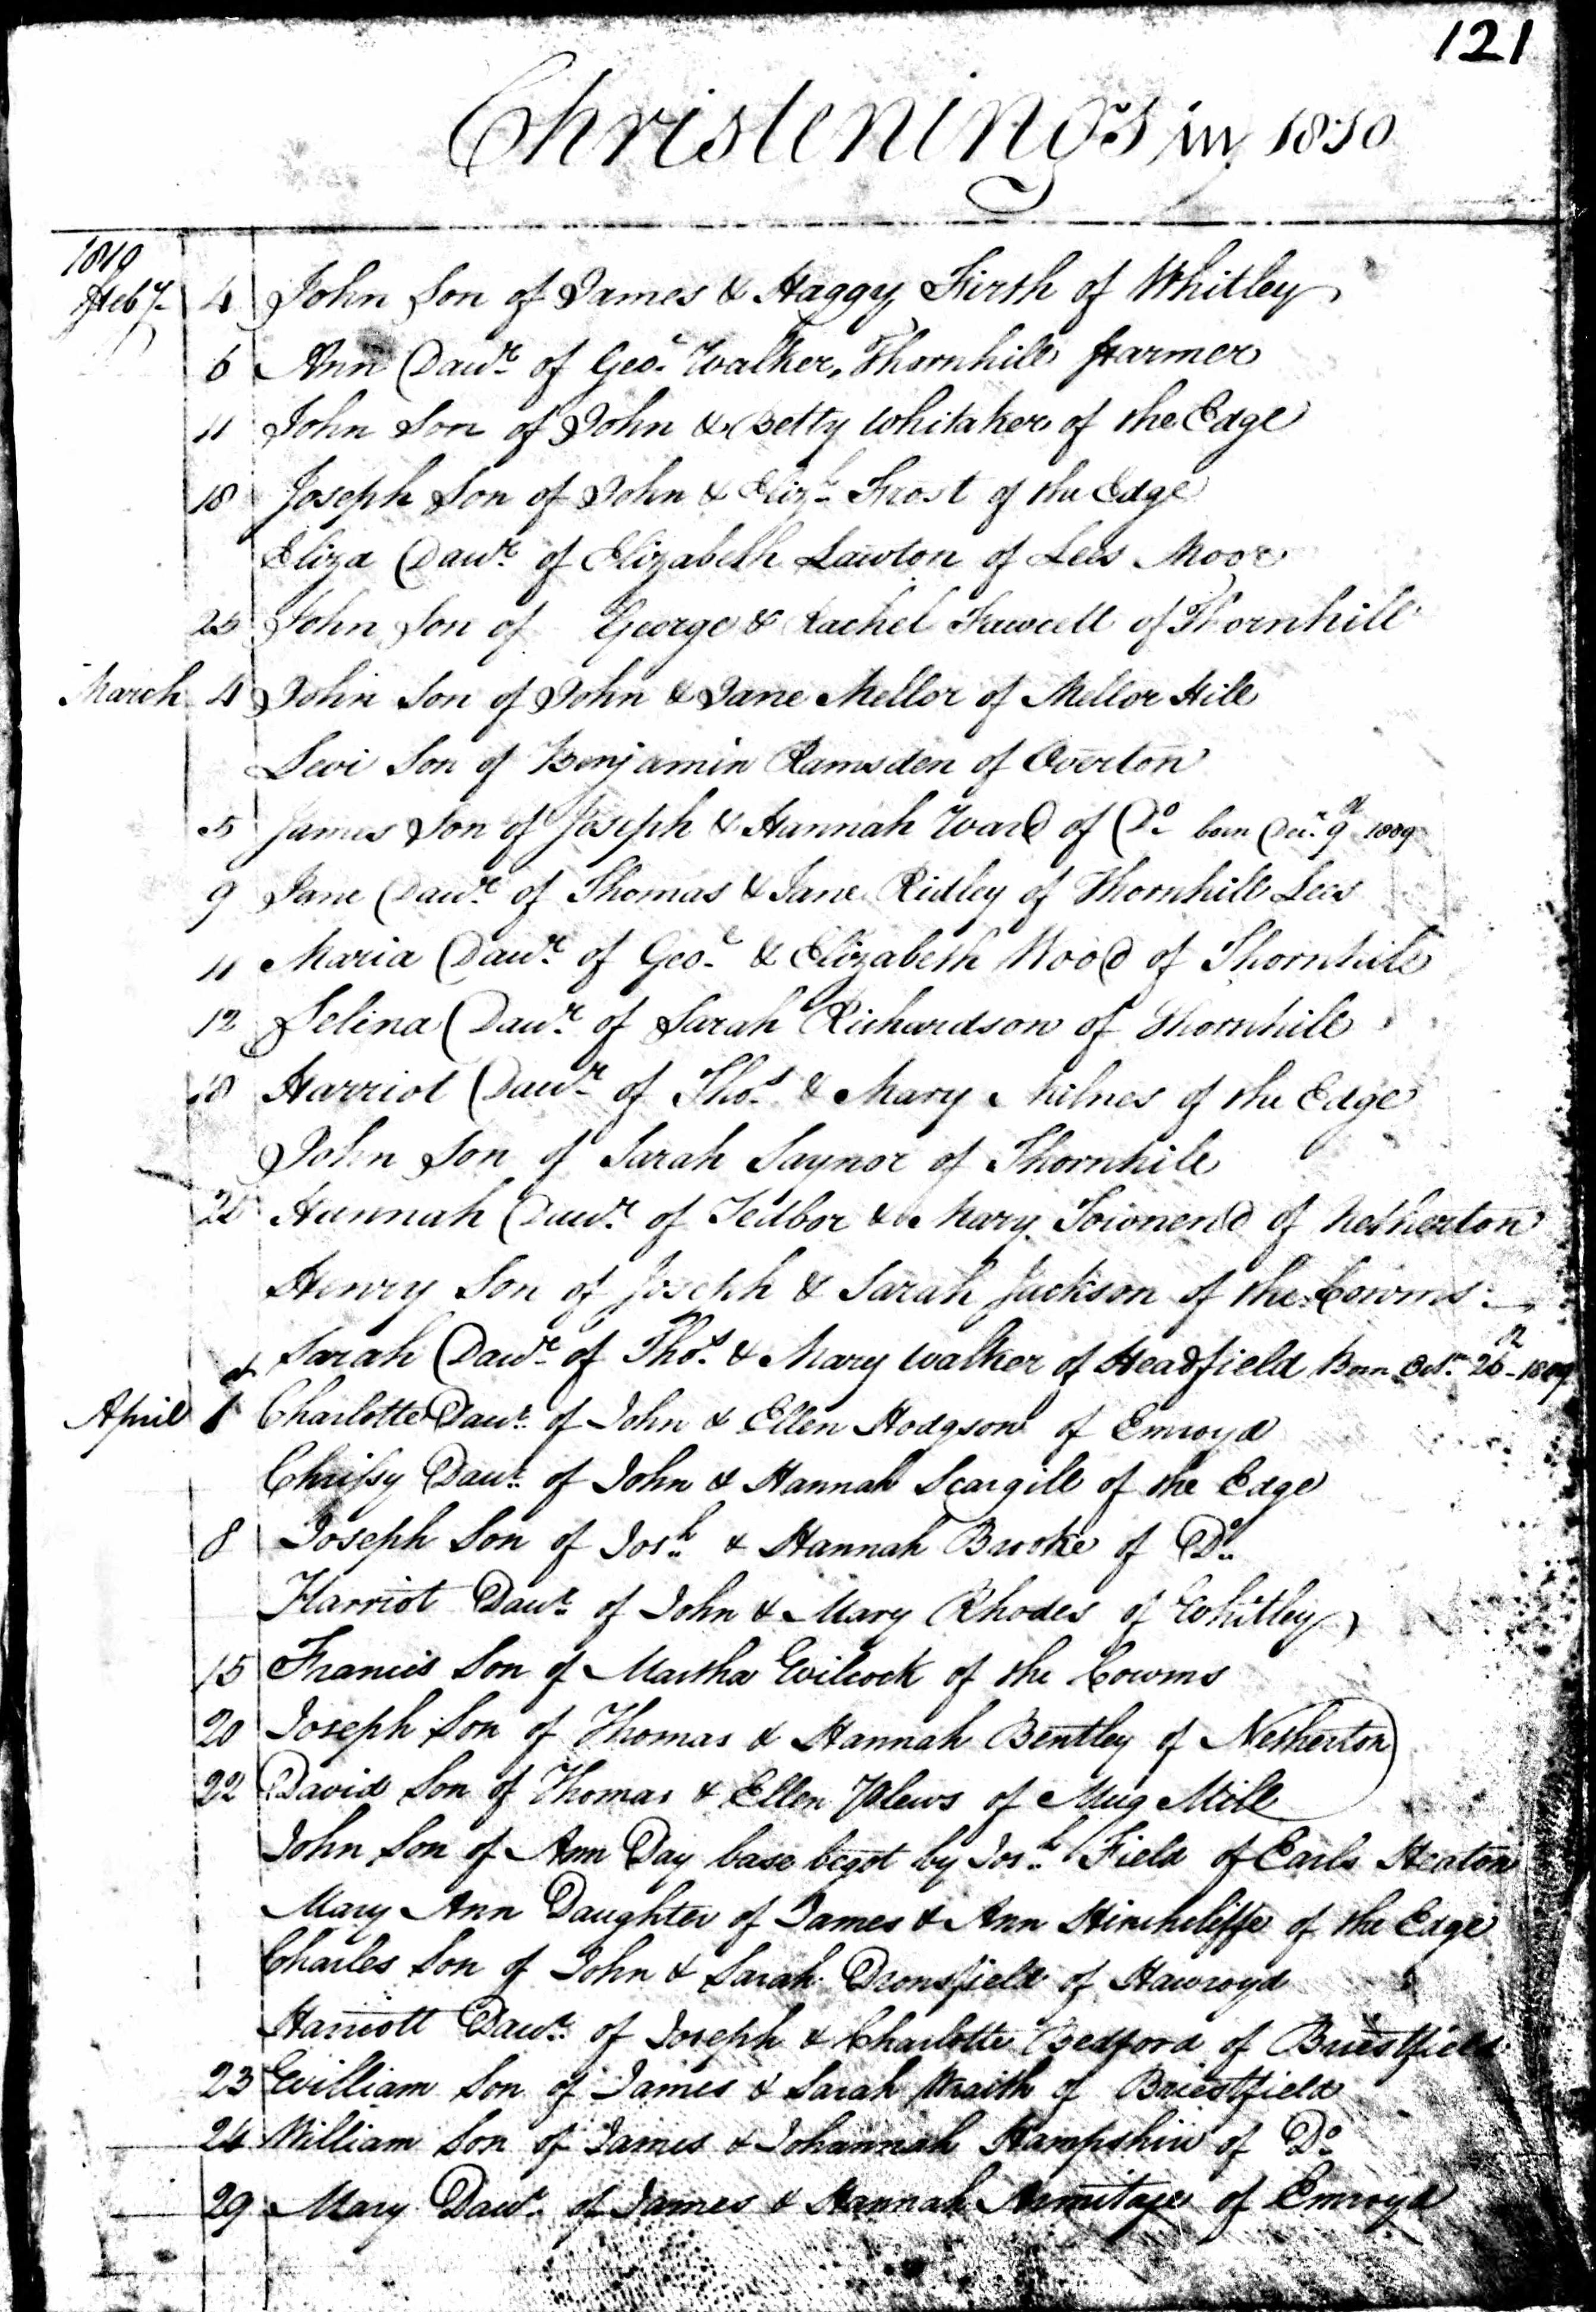 121
Christenings in 1810
1810
Feby 4 John Son of James & Haggy Firth of Whitley
6 Ann Dawr. of Geo. Walker, Thornhill farmer
11 John Son of John & Betty Whitaker of the Edge
18 Joseph Son of John & Elizh. Frost of the Edge
Eliza Dawr. of Elizabeth Lawton of Lees Moor
25 John Son of George & Rachel Fawcett of Thornhill
March 4 John Son of John & Jane Mellor of Mellor Hill
Levi Son of Benjamin Ramsden of Overton
5 James Son of Joseph & Hannah Ward of Do. born Decr. 9 1809
9 Jane Dawr. of Thomas & Jane Ridley of Thornhill Lees
11 Maria Dawr. of Geoe. & Elizabeth Wood of Thornhill
12 Selina Dawr. of Sarah Richardson of Thornhill
18 Harriot Dawr. of Thos. & Mary Milnes of the Edge
John Son of Sarah Saynor of Thornhill
25 Hannah Dawr. of Tedbor & Mary Townend of Netherton
Henry Son of Joseph & Sarah Jackson of the Cowms
Sarah Dawr. of Thos. & Mary Walker of Headfield Born Octr. 26 1809
April 1 Charlotte Dawr. of John & Ellen Hodgson of Emroyd
Chrissy Dawr. of John & Hannah Scargill of the Edge
8 Joseph Son of Josh. & Hannah Brooke of Do.
Harriot Dawr. of John & Mary Rhodes of Whitley
15 Francis Son of Martha Wilcock of the Cowms
20 Joseph Son of Thomas & Hannah Bentley of Netherton
22 David Son of Thomas & Ellen of Mug Mill
John Son of Ann Day base begot by Josh. Field of Earls Heaton
Mary Ann Daughter of James & Ann Hinchcliffe of the Edge
Charles Son of John & Sarah Dronsfield of Hawroyd
Harriott Dawr. of Joseph & Charlotte Bedford of Briestfield
23 William Son of James & Sarah Wraith of Briestfield
24 William Son of James & Johannah Hampshire of Do
29 Mary Dawr. of James & Hannah Armitage of Emroyd